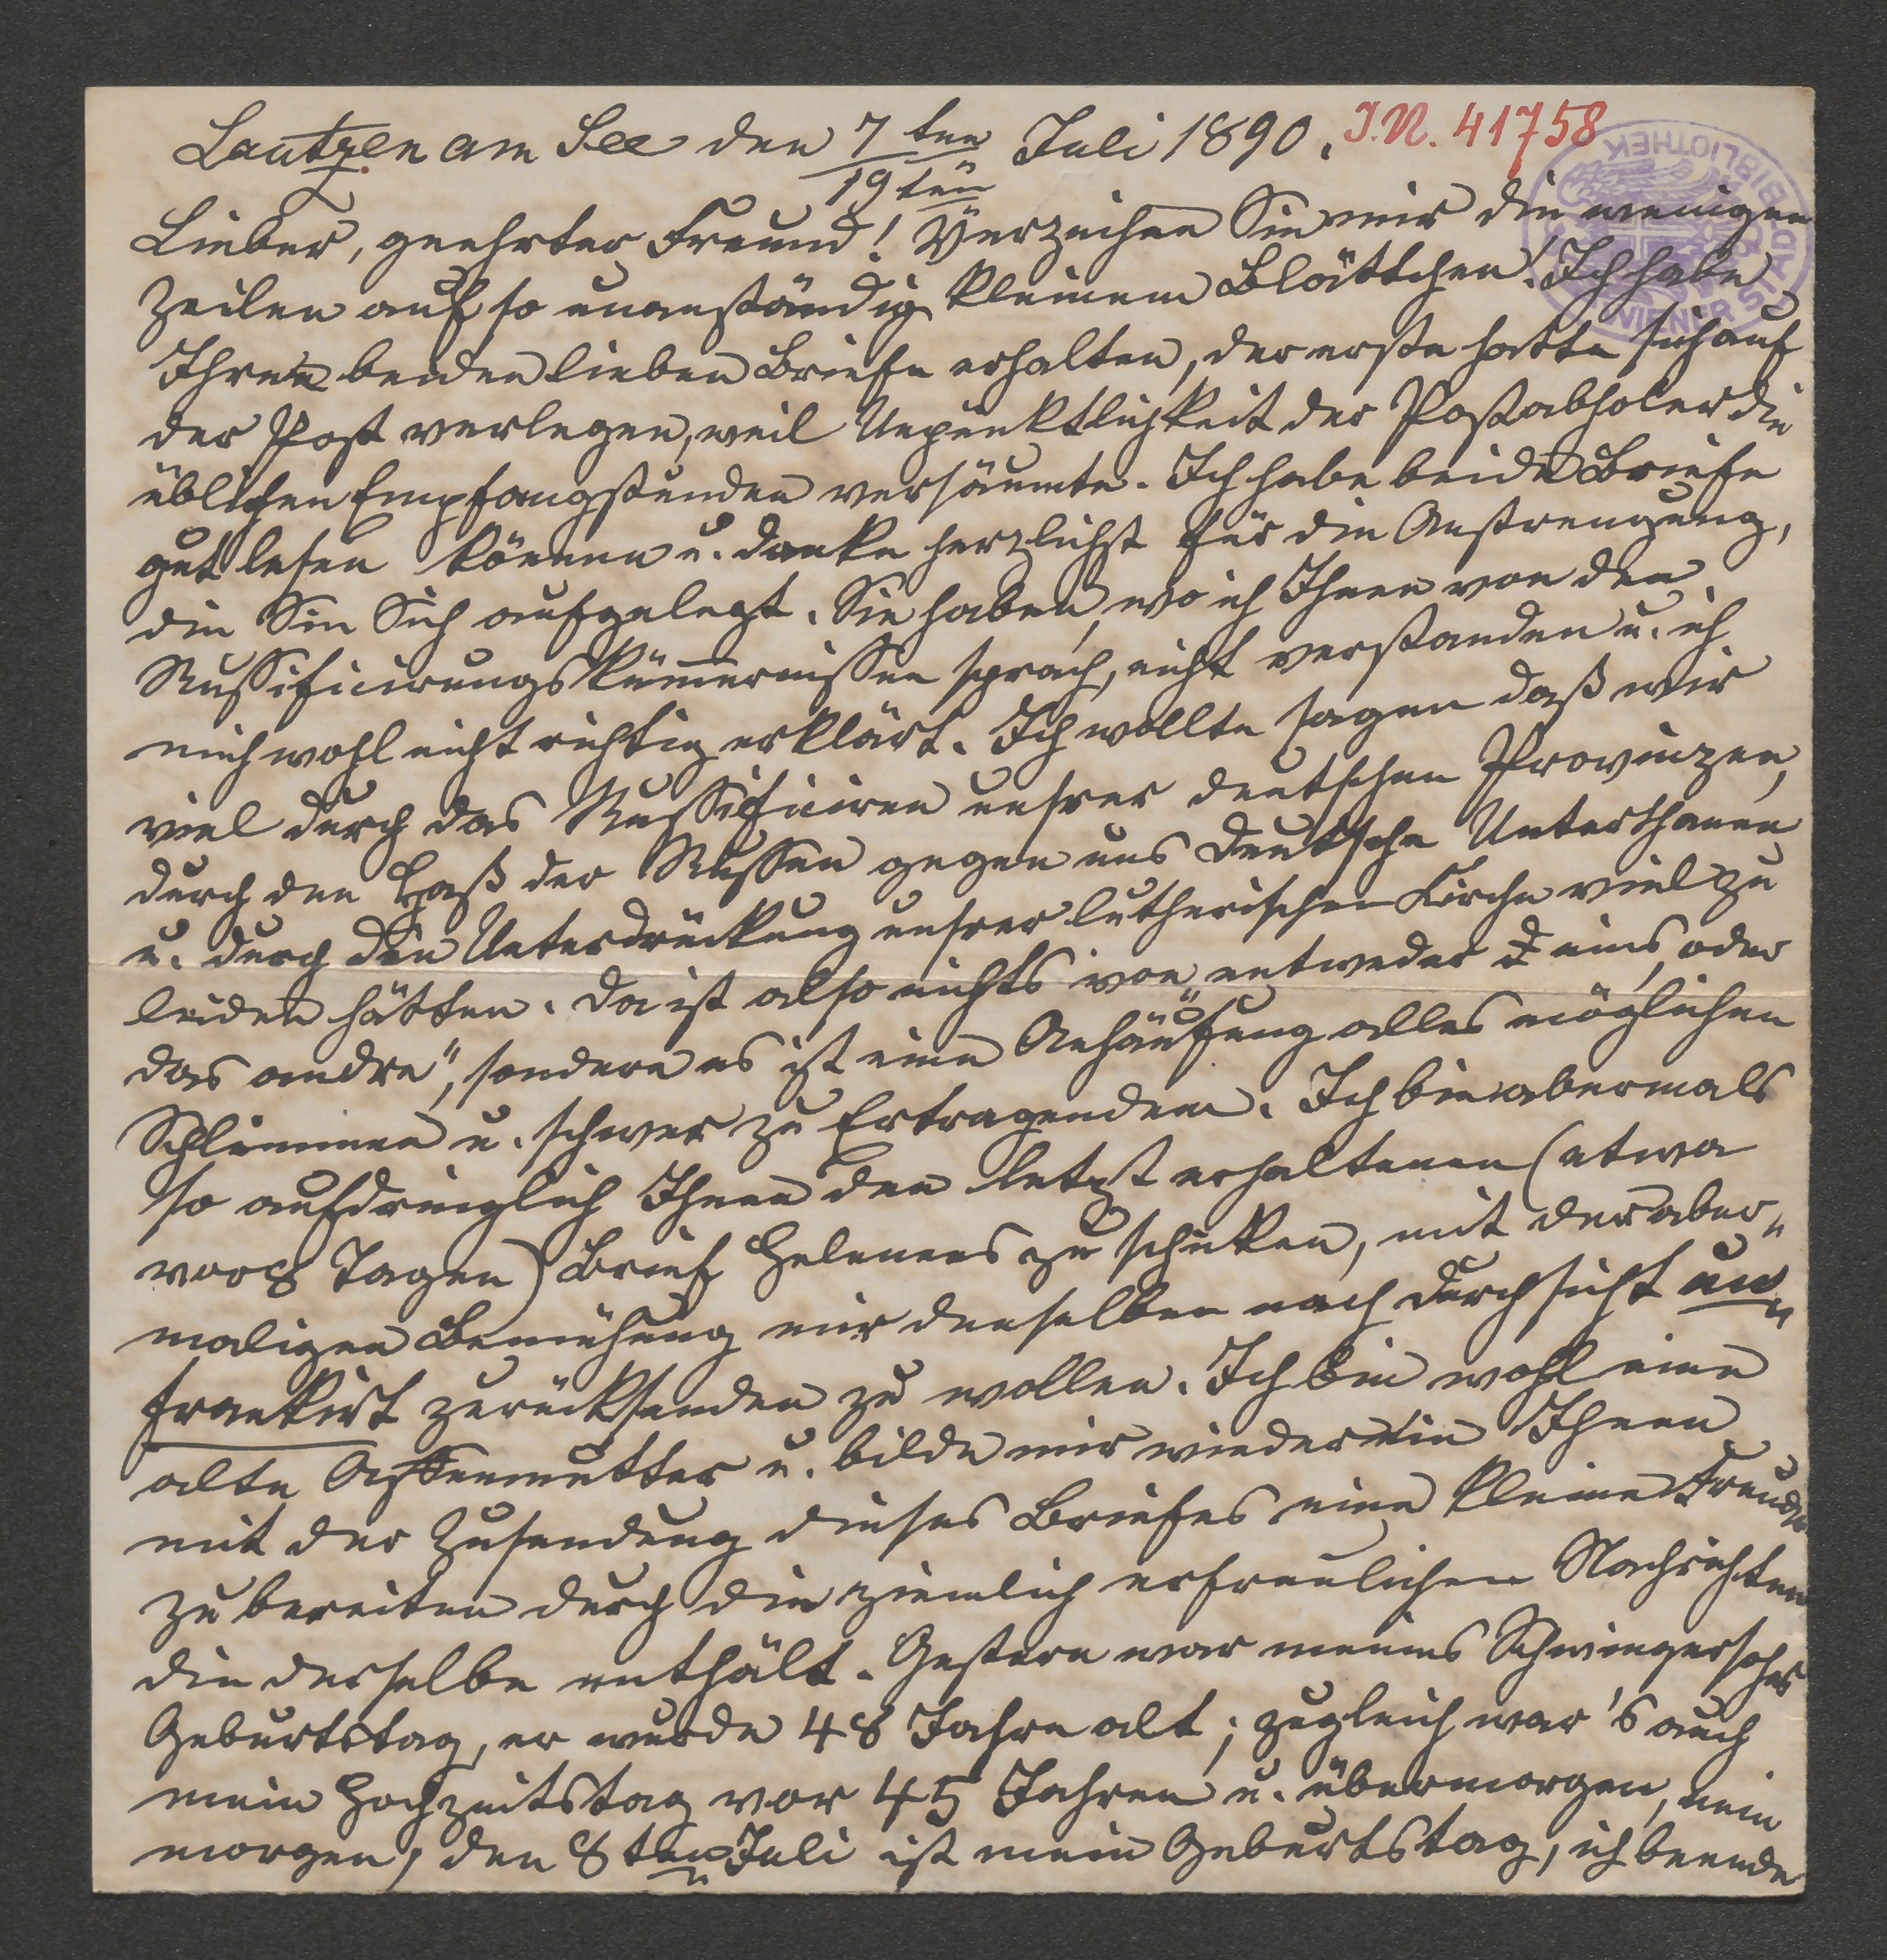 Lautzen am See den 7ten/19ten Juli 1890. I.N. 41758
Lieber, geehrter Freund! Verzeihen Sie mir die wenigen
Zeilen auf so unanständig kleinem Blättchen! Ich habe
Ihre beiden lieben Briefe erhalten, der erste hatte sich auf
der Post verlegen, weil Unpünktlichkeit der Postabholer die
üblichen Empfangstunden versäumte. Ich habe beide Briefe
gut lesen können u. danke herzlichst für die Anstrengung,
die Sie Sich aufgelegt. Sie haben, wo ich Ihnen von den
Russificirungskümmernissen sprach, nicht verstanden u. ich
mich wohl nicht richtig erklärt. Ich wollte sagen daß wir
viel durch das Russificiren unsrer deutschen Provinzen,
durch den Haß der Russen gegen uns deutsche Unterthanen
u. durch die Unterdrückung unsrer lutherischen Kirche viel zu
leiden hätten. Da ist also nichts von „entweder eins, oder
das andre“, sondern es ist eine Anhäufung alles möglichen
Schlimmen u. schwer zu Ertragenden. Ich bin abermals
so aufdringlich Ihnen den letzt erhaltenen (etwa
vor 8 Tagen) Brief Helenens zu schicken, mit der aber„
maligen Bemühung mir denselben nach Durchsicht un„
frankirt zurücksenden zu wollen. Ich bin wohl eine
alte Affenmutter u. bilde mir wieder ein Ihnen
mit der Zusendung dieses Briefes eine kleine Freude
zu bereiten durch die ziemlich erfreulichen Nachrichten
die derselbe enthält. Gestern war meines Schwiegersohns
Geburtstag, er wurde 48 Jahre alt; zugleich war's auch
mein Hochzeitstag vor 45 Jahren u. übermorgen, nein
morgen, den 8ten Juli ist mein Geburtstag, ich beende
WIENER STADTBIBLIOTHEK